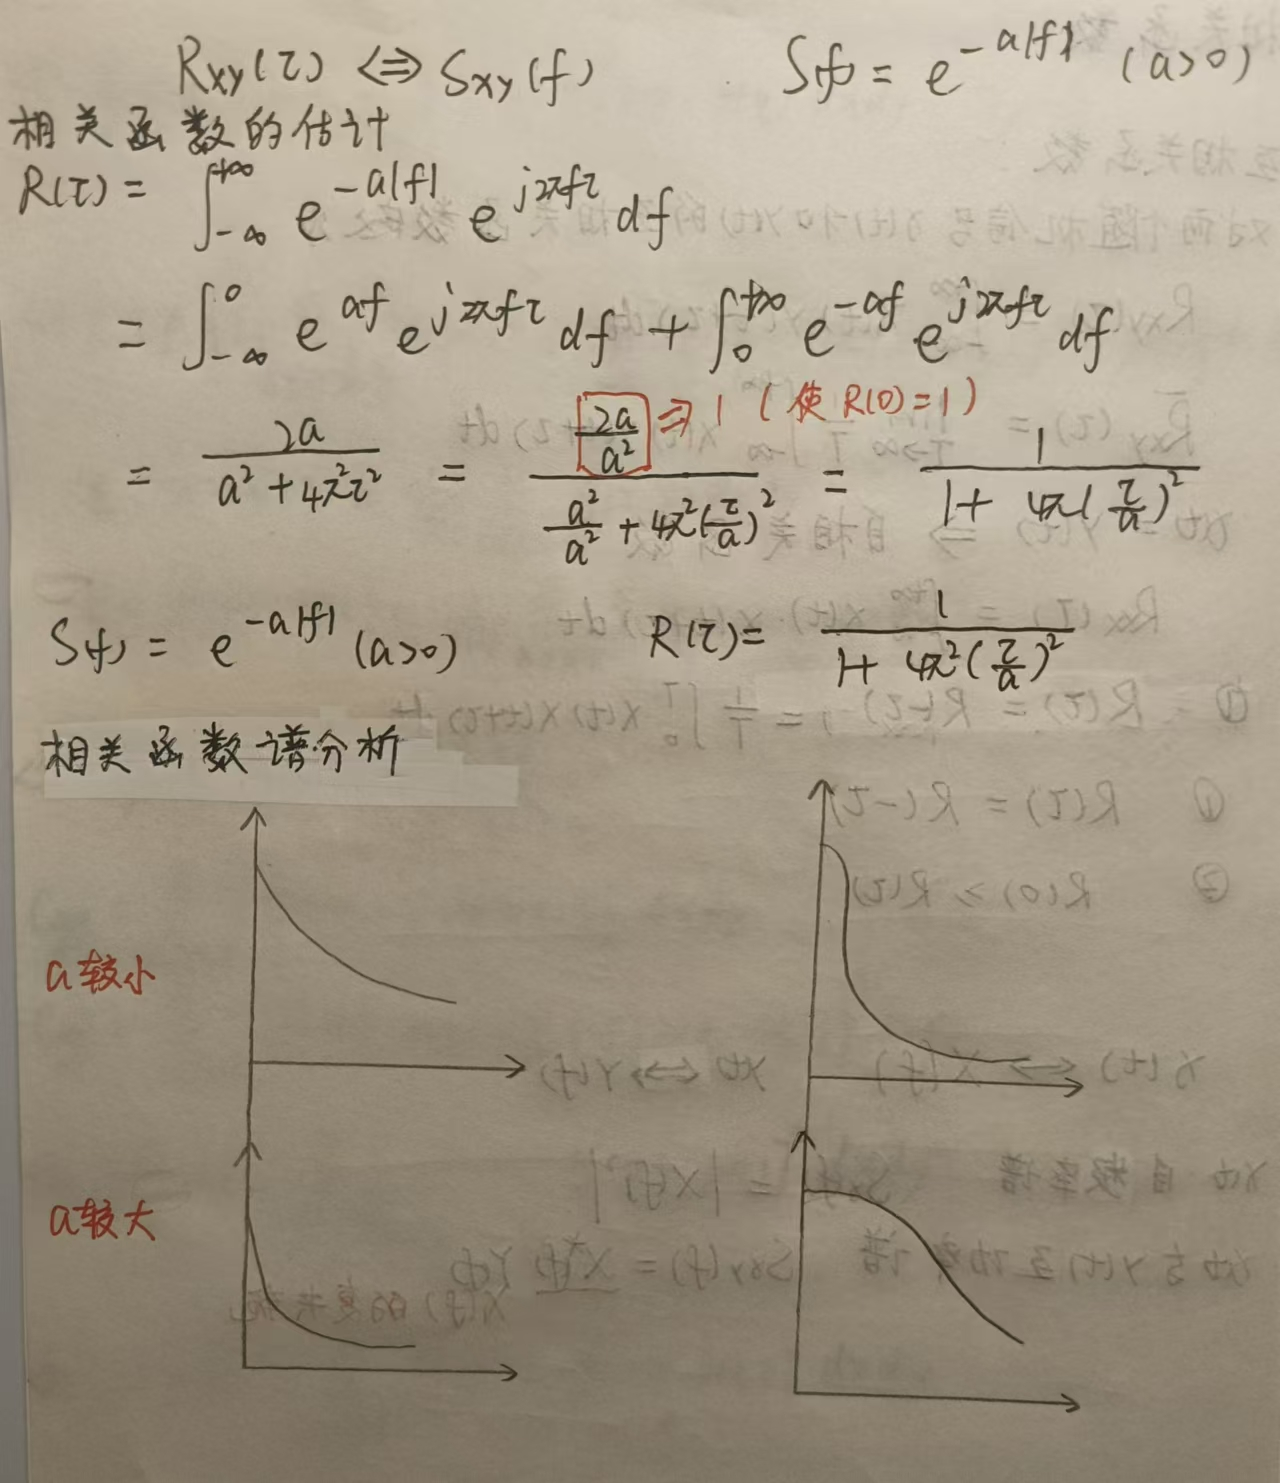 Rxy(τ) ⟺ Sxy(f)    S(f) = e^{-a|f|} (a>0)
相关函数的估计
R(τ) = ∫_{-∞}^{+∞} e^{-a|f|} e^{j2πfτ} df
= ∫_{-∞}^{0} e^{af} e^{j2πfτ} df + ∫_{0}^{+∞} e^{-af} e^{j2πfτ} df
= \frac{2a}{a^2+4π^2τ^2} = \frac{\frac{2a}{a^2}}{\frac{a^2}{a^2}+4π^2(\frac{τ}{a})^2} = \frac{1}{1+4π(\frac{τ}{a})^2}
⇒ 1 (使 R(0)=1)
S(f) = e^{-a|f|} (a>0)    R(τ) = \frac{1}{1+4π^2(\frac{τ}{a})^2}
相关函数谱分析
a较小
a较大